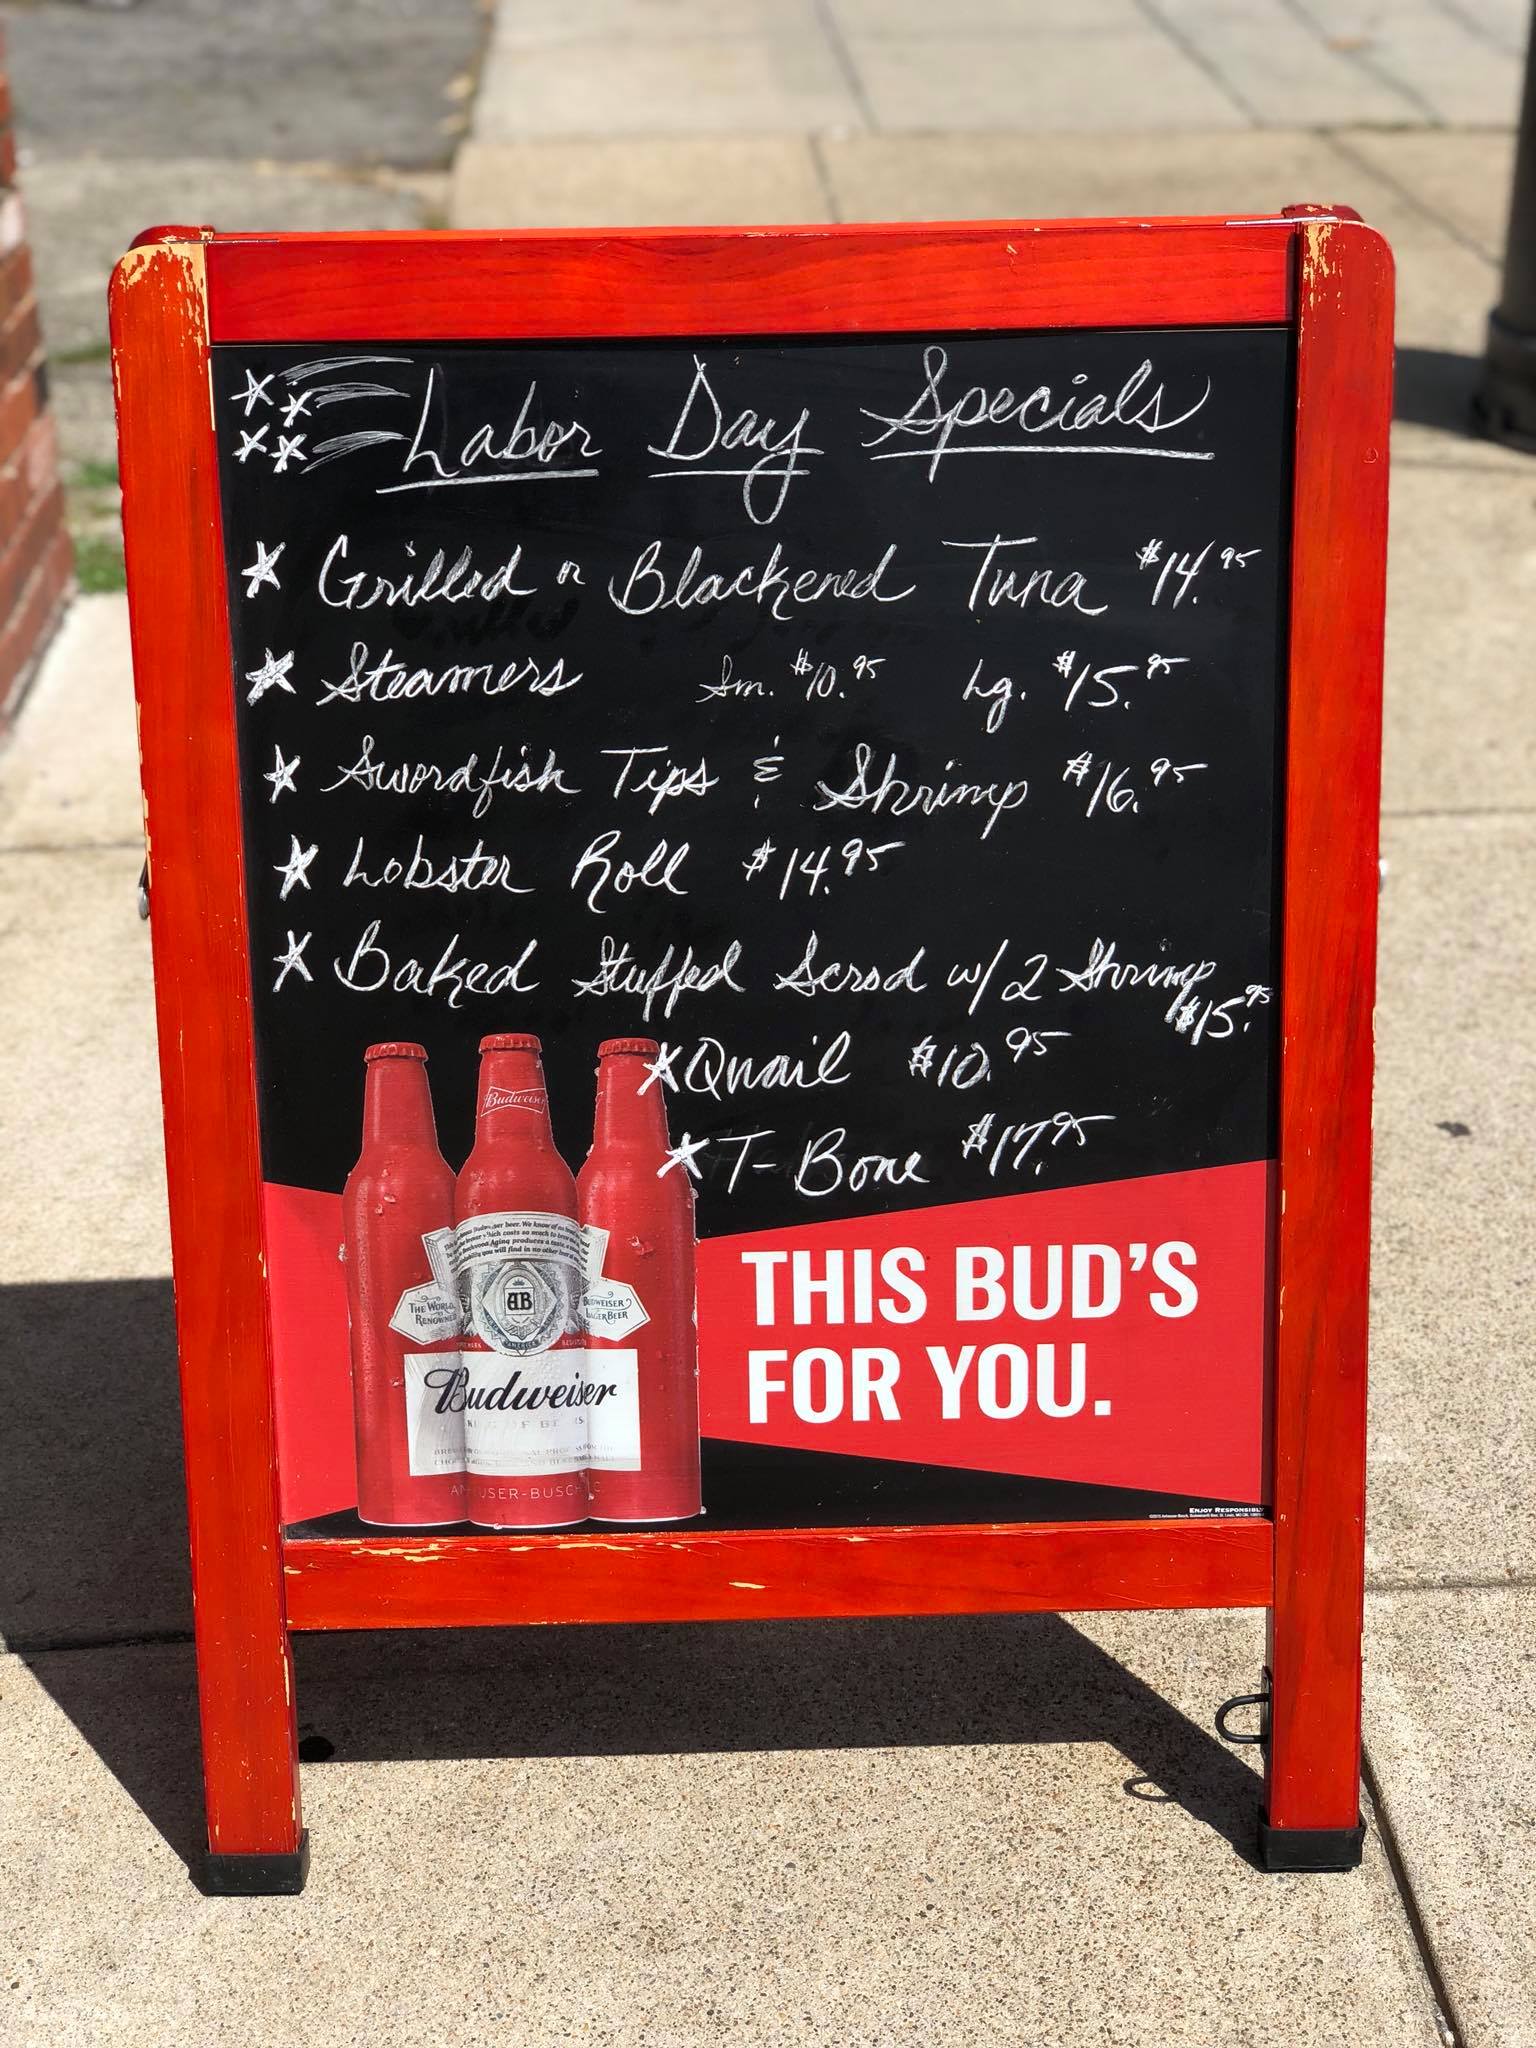 Labor Day Specials
Grilled or Blackened Tuna $14.95
Steamers Sm. $10.95 Lg. $15.95
Swordfish Tips & Shrimp $16.95
Lobster Roll $14.95
Baked Stuffed Scrod w/2 Shrimp
$15.95
Quail $10.95
T-Bone $17.95
Budweiser
THE WORLD
RENOWNED
AB
BUDWEISER
LAGER BEER
Budweiser
THIS BUD'S
FOR YOU.
ENJOY RESPONSIBLY